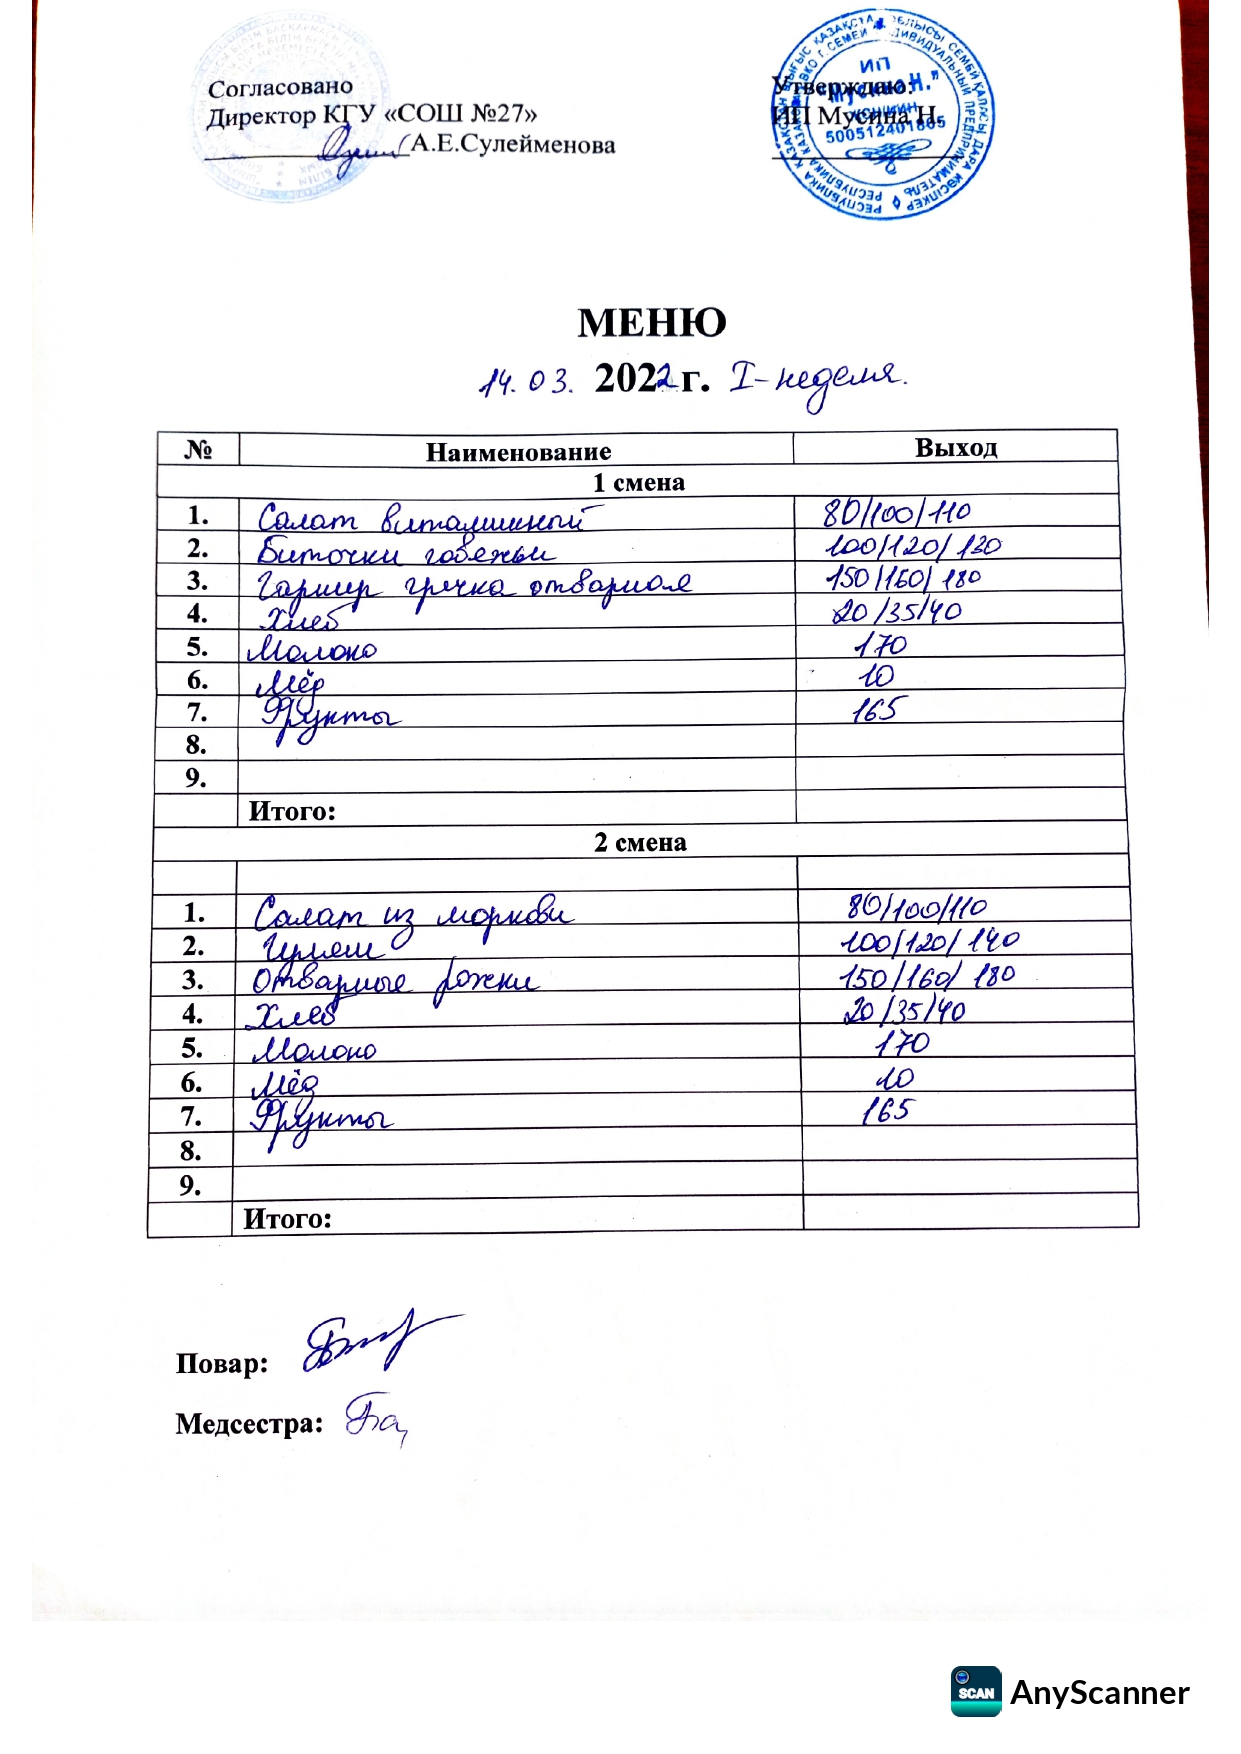 Согласовано
Директор КГУ «СОШ №27»
А.Е.Сулейменова
Утверждаю:
ИП Мусина Н.
ИП
"Мусина Н."
ЖСН/ИИН
500512401865
МЕНЮ
14.03. 2022 г. I-неделя.
№ Наименование Выход
1 смена
1. Салат витаминный 80/100/110
2. Биточки говежьи 100/120/130
3. Гарнир гречка отварная 150/160/180
4. Хлеб 20/35/40
5. Молоко 170
6. Мёд 10
7. Фрукты 165
8.
9.
Итого:
2 смена
1. Салат из моркови 80/100/110
2. Гуляш 100/120/140
3. Отварные рожки 150/160/180
4. Хлеб 20/35/40
5. Молоко 170
6. Мёд 10
7. Фрукты 165
8.
9.
Итого:
Повар:
Медсестра:
SCAN AnyScanner